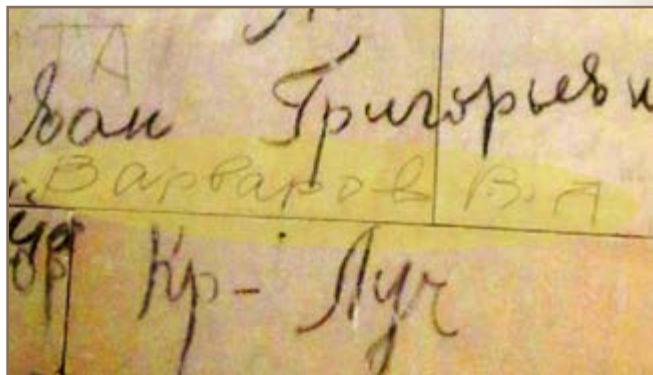 ТА
Иван Григорьеви
Варваров В. А
Кр- Луч